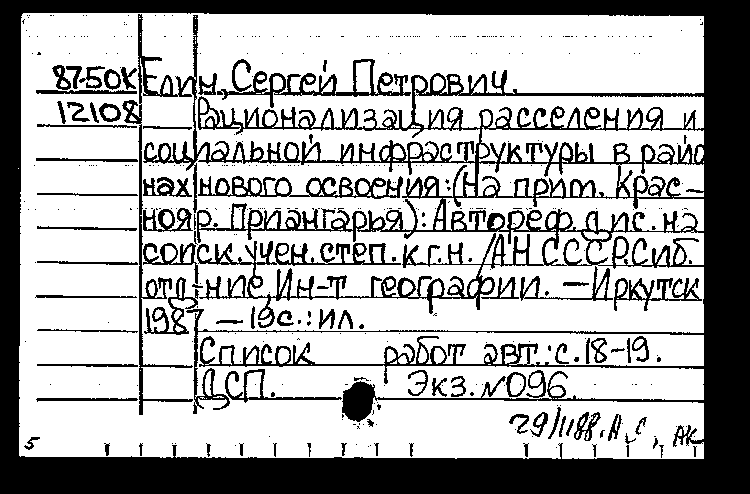 87-50К Елин, Сергей Петрович.
12108 Рационализация расселения и
социальной инфраструктуры в райо
нах нового освоения: (На прим. Крас-
нояр. Приангарья): Автореф. дис. на
соиск. учен. степ. к.г.н. /АН СССР. Сиб.
отд-ние, Ин-т географии. — Иркутск
1987. — 19с.: ил.
Список работ авт.: с. 18-19.
ДСП. Экз. №096.
29/1188. А, С, АК
5